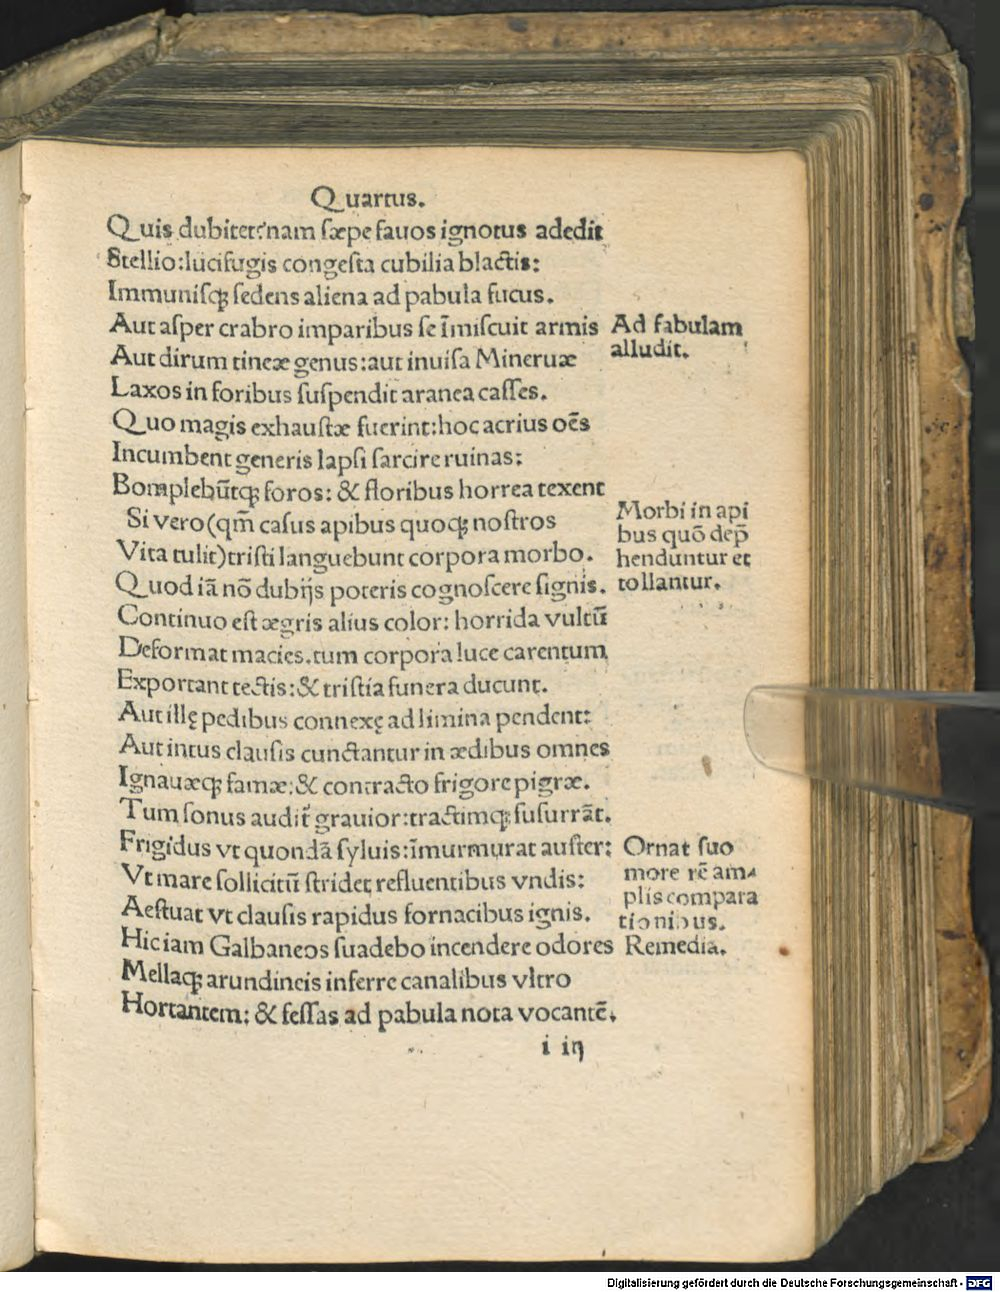 Quartus.
Quis dubitet?nam sæpe fauos ignotus adedit
Stellio:lucifugis congesta cubilia blactis:
Immunisq; sedens aliena ad pabula fucus.
Aut asper crabro imparibus se īmiscuit armis
Ad fabulam
alludit.
Aut dirum tineæ genus:aut inuisa Mineruæ
Laxos in foribus suspendit aranea casses.
Quo magis exhaustæ fuerint:hoc acrius oēs
Incumbent generis lapsi sarcire ruinas:
Bomplebūtq; foros: & floribus horrea texent
Si vero(qm̄ casus apibus quoq; nostros
Morbi in api
bus quō dep̄
henduntur et
tollantur.
Vita tulit)tristi languebunt corpora morbo.
Quod iā nō dubijs poteris cognoscere signis.
Continuo est ægris alius color: horrida vultū
Deformat macies.tum corpora luce carentum
Exportant tectis:& tristia funera ducunt.
Aut illę pedibus connexę ad limina pendent:
Aut intus clausis cunctantur in ædibus omnes
Ignauæq; famæ:& contracto frigore pigræ.
Tum sonus audit̄ grauior:tractimq; susurrāt.
Frigidus vt quondā syluis:īmurmurat auster:
Ornat suo
more rē am⸗
plis compara
tionibus.
Vt mare sollicitū stridet refluentibus vndis:
Aestuat vt clausis rapidus fornacibus ignis.
Hic iam Galbaneos suadebo incendere odores
Remedia.
Mellaq; arundineis inferre canalibus vltro
Hortantem: & fessas ad pabula nota vocantē.
i iij
Digitalisierung gefördert durch die Deutsche Forschungsgemeinschaft - DFG